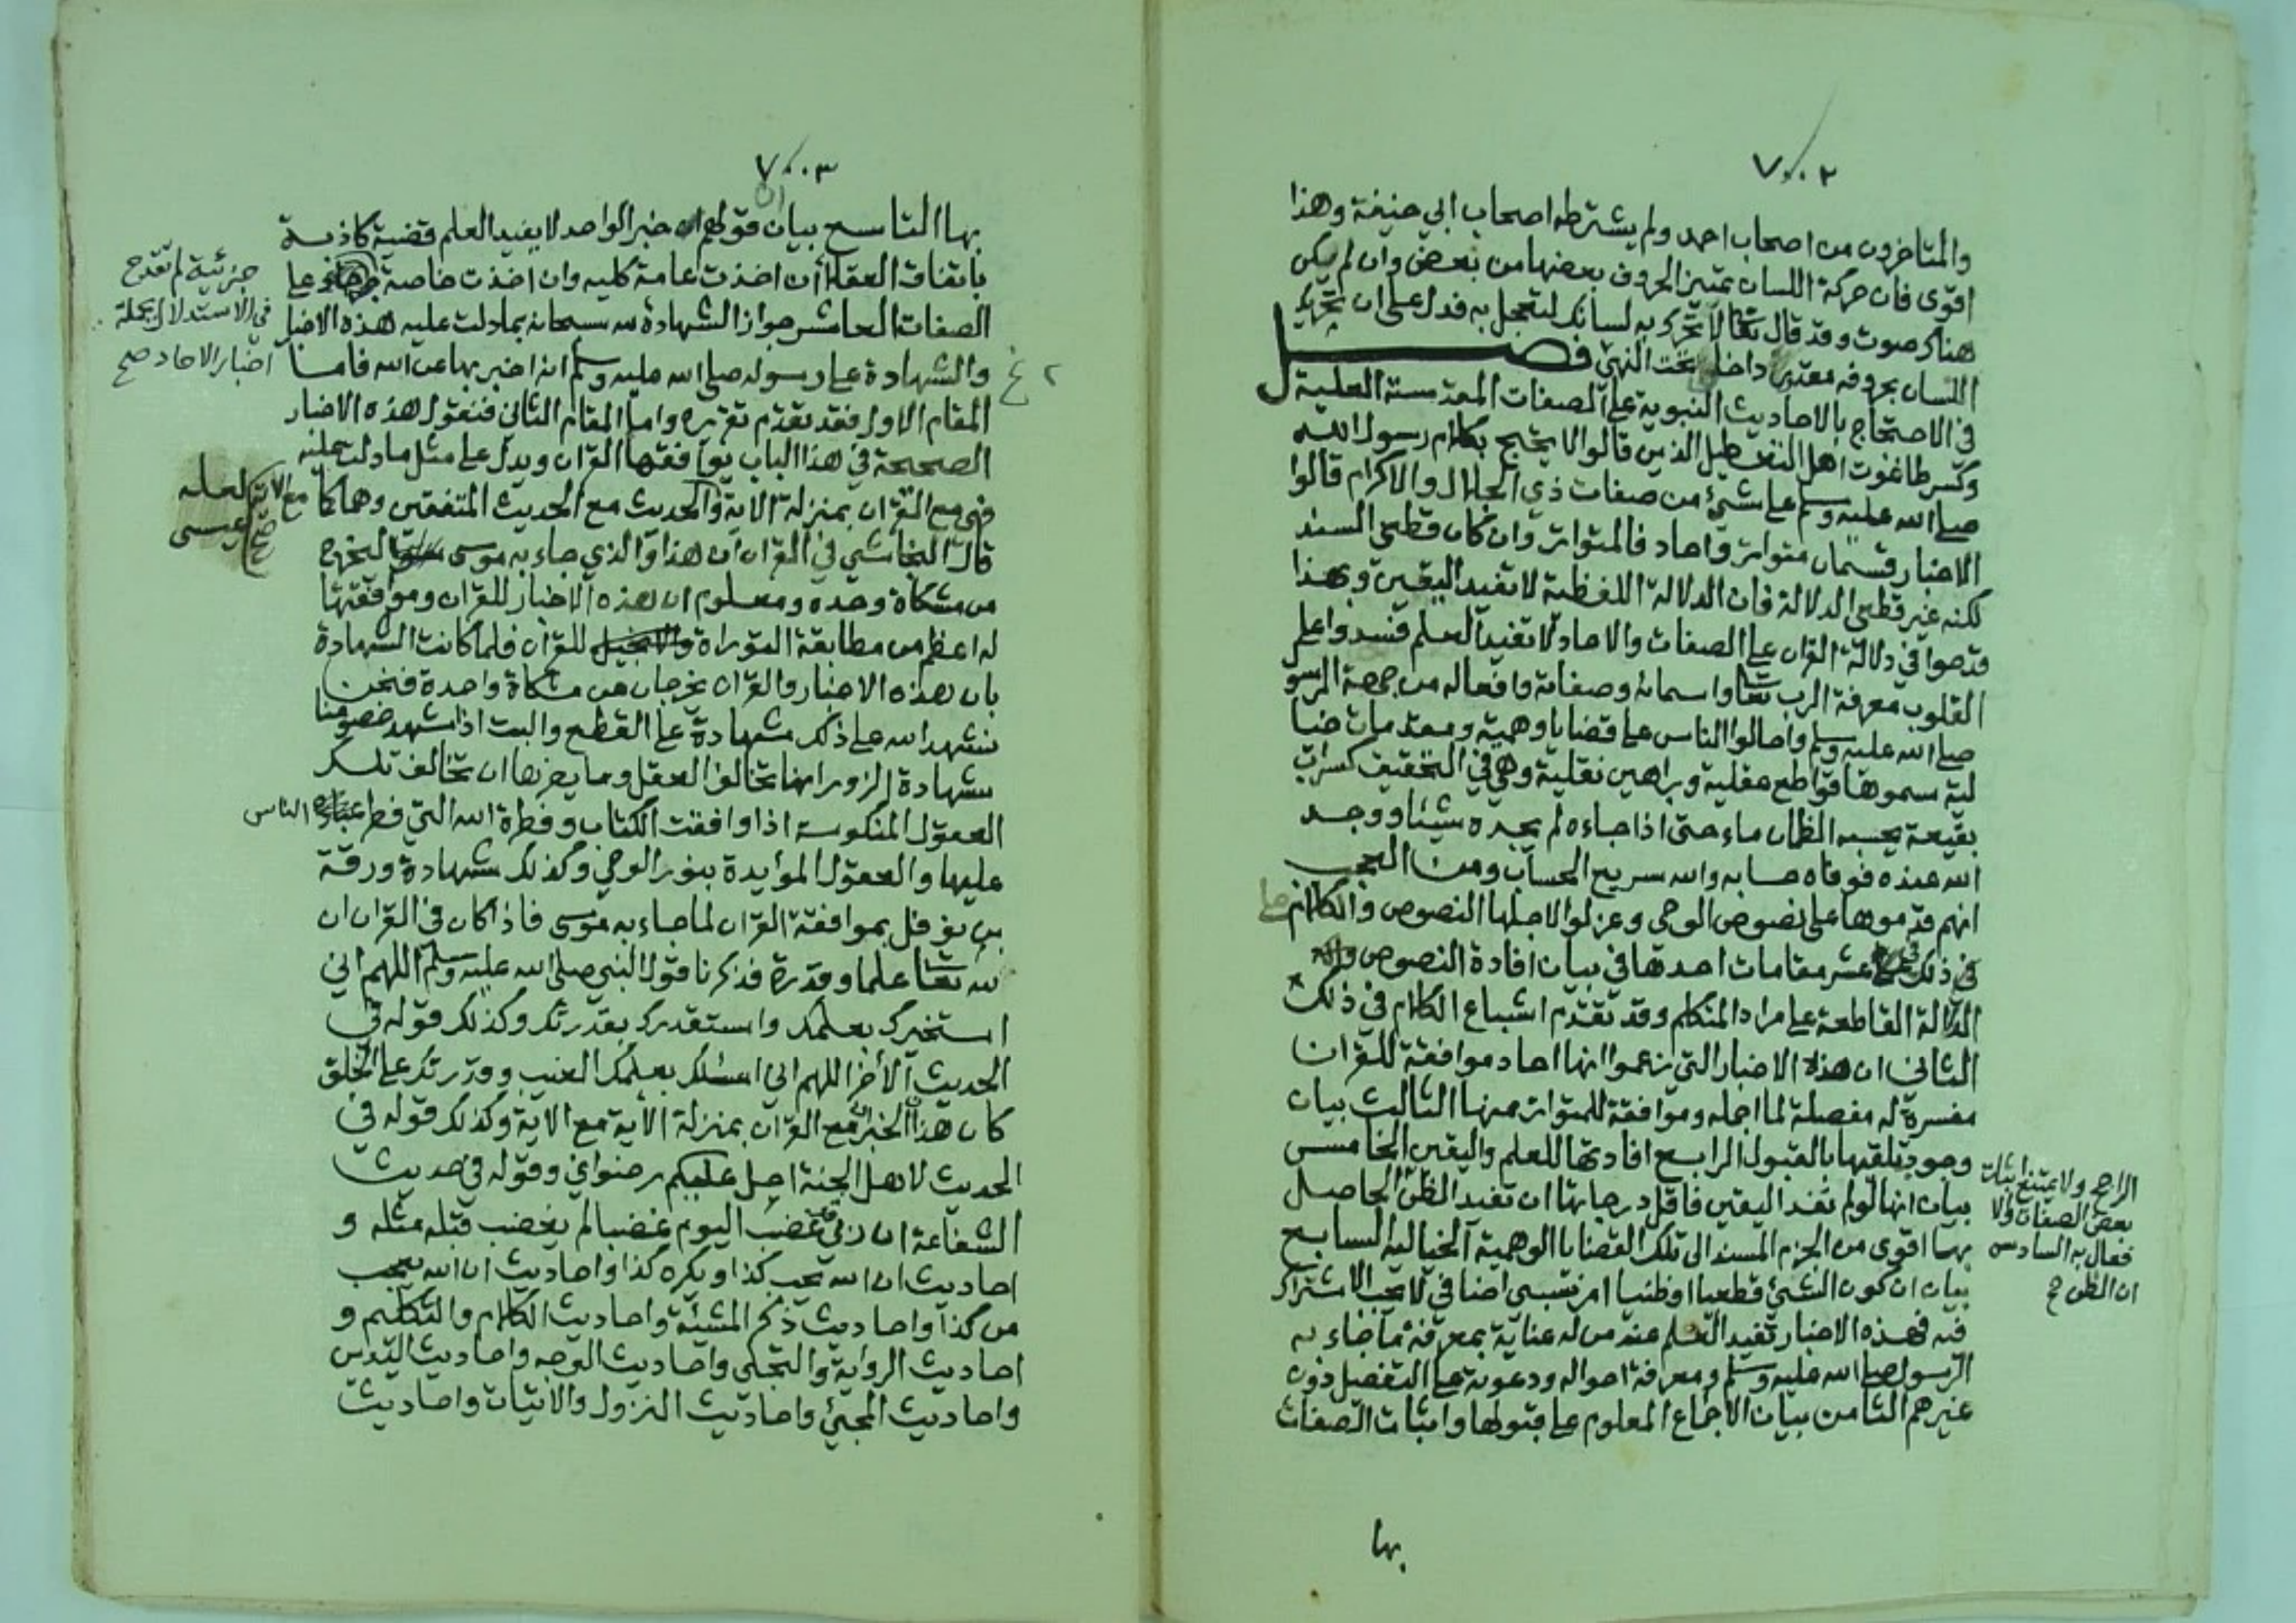 ٧٠٠٢
والمتاخرون من اصحاب احمد ولم يشترطه اصحاب ابي حنيفة وهذا
اقوى فان حركة اللسان تميز الحروف بعضها من بعض وان لم يكن
هناك صوت وقد قال تعا لا تحرك به لسانك لتعجل به فدل على ان تحريك
اللسان بحروفه داخل تحت النهي فصل
في الاحتجاج بالاحاديث النبوية على الصفات المقدسة العلية
وكسر طاغوت اهل التعطيل الذين قالوا لا يحتج بكلام رسول الله
صلى الله عليه وسلم على شئ من صفات ذي الجلال والاكرام قالوا
الاخبار قسمان متواتر واحاد فالمتواتر وان كان قطعي السند
لكنه غير قطعي الدلالة فان الدلالة اللفظية لا تفيد اليقين وبهذا
قدحوا في دلالة القران على الصفات والاحاد لا تفيد العلم فسدوا على
القلوب معرفة الرب تعا واسمائه وصفاته وافعاله من جهة الرسو
صلى الله عليه وسلم واحالوا الناس على قضايا وهمية ومقدمات خيا
لية سموها قواطع عقلية وبراهين نقلية وهي في التحقيق كسراب
بقيعة يحسبه الظمان ماء حتى اذا جاءه لم يجده شيئا ووجد
الله عنده فوفاه حسابه والله سريع الحساب ومن العجب
انهم قدموها على نصوص الوحي وعزلوا لاجلها النصوص والكلام
في ذلك في عشر مقامات احدها في بيان افادة النصوص
الدلالة القاطعة على مراد المتكلم وقد تقدم اشباع الكلام في ذلك
الثاني ان هذه الاخبار التي زعموا انها احاد موافقة للقران
مفسرة له مفصلة لما اجمله وموافقة للمتواتر منها الثالث بيان
وجوب تلقيها بالقبول الرابع افادتها للعلم واليقين الخامس
بيان انها لو لم تفد اليقين فاقل درجاتها ان تفيد الظن الحاصل
الراجح ولا يمتنع اثبات
بعض الصفات والا
فعال به السادس
ان الظن ح
بها اقوى من الجزم المسند الى تلك القضايا الوهمية الخيالية السابع
بيان ان كون الشئ قطعيا او ظنيا امر نسبي اضافي لا يجب الاشتراك
فيه فهذه الاخبار تفيد العلم عند من له عناية بمعرفة ما جاء به
الرسول صلى الله عليه وسلم ومعرفة احواله ودعوته على التفصيل دون
غيرهم الثامن بيان الاجماع المعلوم على قبولها واثبات الصفات
بها
٧٠٠٣
بها التاسع بيان قولهم ان خبر الواحد لا يفيد العلم قضية كاذبة
باتفاق العقلا ان اخذت عامة كلية وان اخذت خاصة
جزئية لم تقدح
في الاستدلال بجملة
اخبار الاحاد صح على
الصفات العاشر جواز الشهادة لله سبحانه بما دلت عليه هذه الاخبار
والشهادة على رسوله صلى الله عليه وسلم انه اخبر بها عن الله فاما
المقام الاول فقد تقدم تقريره واما المقام الثاني فنقول هذه الاخبار
الصحيحة في هذا الباب يوافقها القران ويدل على مثل ما دلت عليه
فهي مع القران بمنزلة الاية مع الاية والحديث مع الحديث المتفقين وهما كما
قال النجاشي في القران ان هذا والذي جاء به موسى ليخرج
لعله
عيسى
من مشكاة وحده ومعلوم ان هذه الاخبار للقران وموافقتها
له اعظم من مطابقة التوراة والانجيل للقران فلما كانت الشهادة
بان هذه الاخبار والقران يخرجان من مشكاة واحدة فنحن
نشهد الله على ذلك شهادة على القطع والبت اذا شهد خصومنا
شهادة الزور انها تخالف العقل وما يضرها ان تخالف تلك
العقول المنكوسة اذا وافقت الكتاب وفطرة الله التي فطر عباده الناس
عليها والعقول المؤايدة بنور الوحي وكذلك شهادة ورقة
بن نوفل بموافقة القران لما جاء به موسى فاذا كان في القران ان
لله تعا علما وقدرة فذكرنا قول النبي صلى الله عليه وسلم اللهم اني
استخيرك بعلمك واستقدرك بقدرتك وكذلك قوله في
الحديث الاخر اللهم اني اسئلك بعلمك الغيب وقدرتك على الخلق
كان هذا الخبر مع القران بمنزلة الاية مع الاية وكذلك قوله في
الحديث لاهل الجنة احل عليكم رضواني وقوله في حديث
الشفاعة ان ربي غضب اليوم غضبا لم يغضب قبله مثله و
احاديث ان الله يحب كذا ويكره كذا واحاديث ان الله يعجب
من كذا واحاديث ذكر المشيئة واحاديث الكلام والتكليم و
احاديث الرواية والتجلي واحاديث الوجه واحاديث اليدين
واحاديث المجيئ واحاديث النزول والاتيان واحاديث